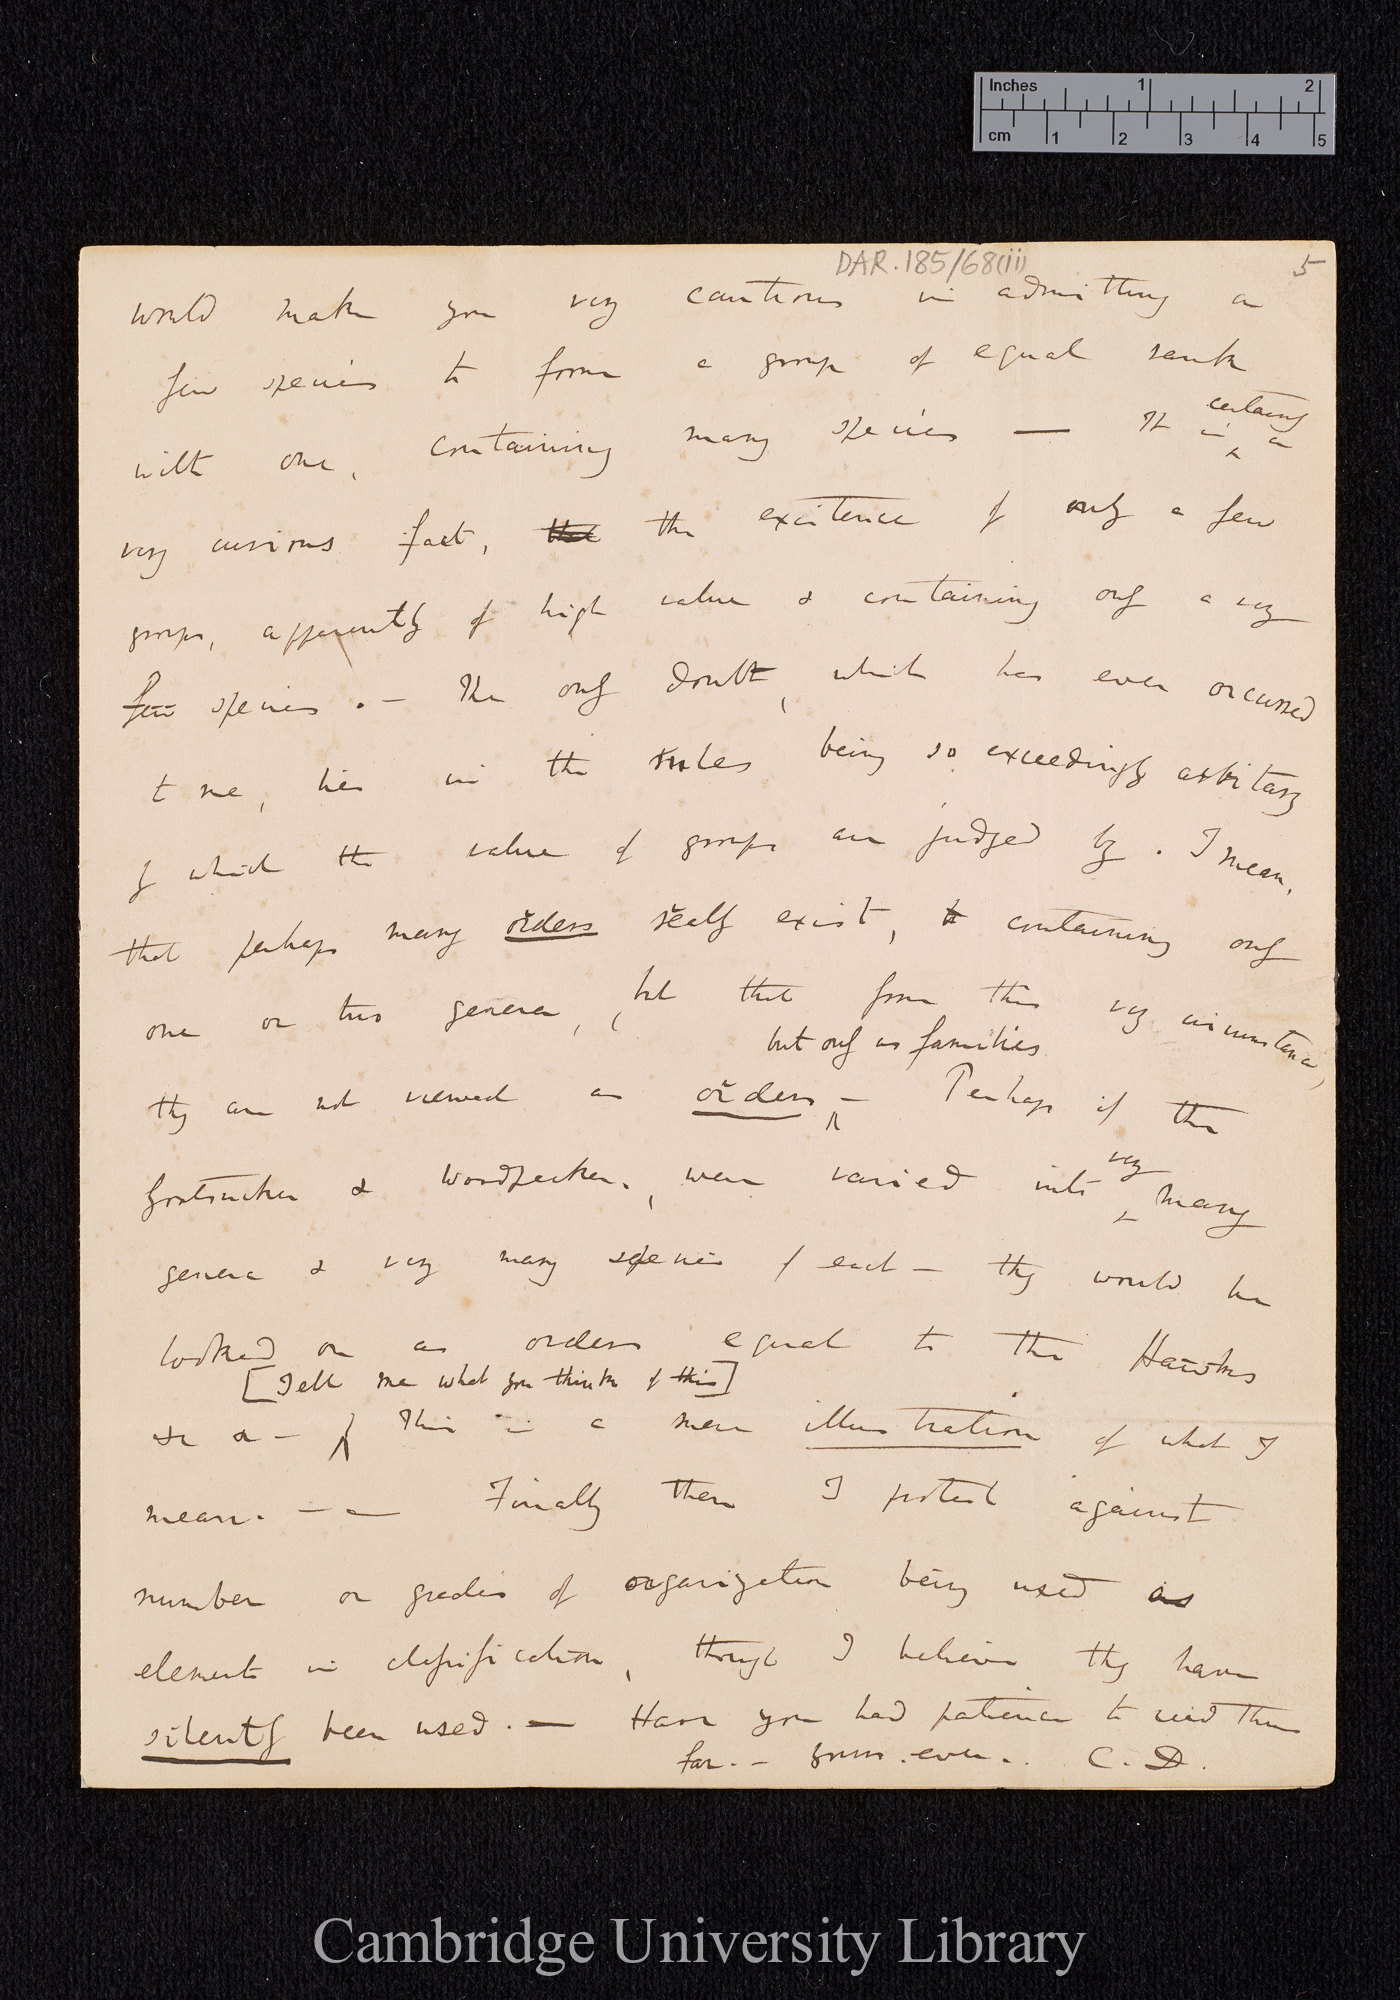 Inches 1 2
cm 1 2 3 4 5
DAR.185/68(ii) 5
would make you very cautious in admitting a
few species to form a group of equal rank
with one, containing many species — It is certainly a
very curious fact, that the existence of only a few
groups, apparently of high value & containing only a very
few species. — The only doubt, which has ever occurred
to me, lies in the rules being so exceedingly arbitary
of which the value of groups are judged by. I mean,
that perhaps many orders really exist, containing only
one or two genera, but that from this very circumstance,
but only as families
they are not viewed as orders — Perhaps if the
Goatsucker & Woodpecker, were varied into very many
genera & very many species of each — they would be
looked on as orders equal to the Hawks
[Tell me what you think of this]
&c &— This is a mere illustration of what I
mean. — — Finally then I protest against
number or grades of organization being used as
element in classification, though I believe they have
silently been used. — Have you had patience to read thus
far. — Yours ever. C. D.
Cambridge University Library